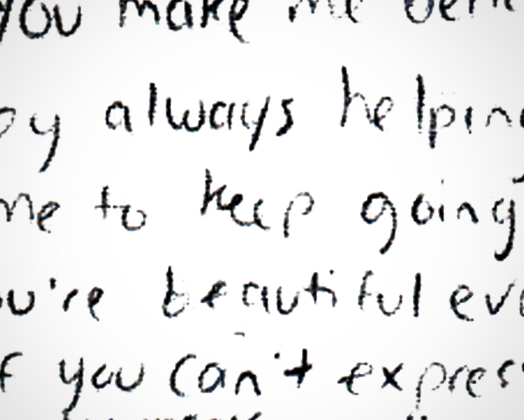 you make me
by always helping
me to keep going
you're beautiful
if you can't express